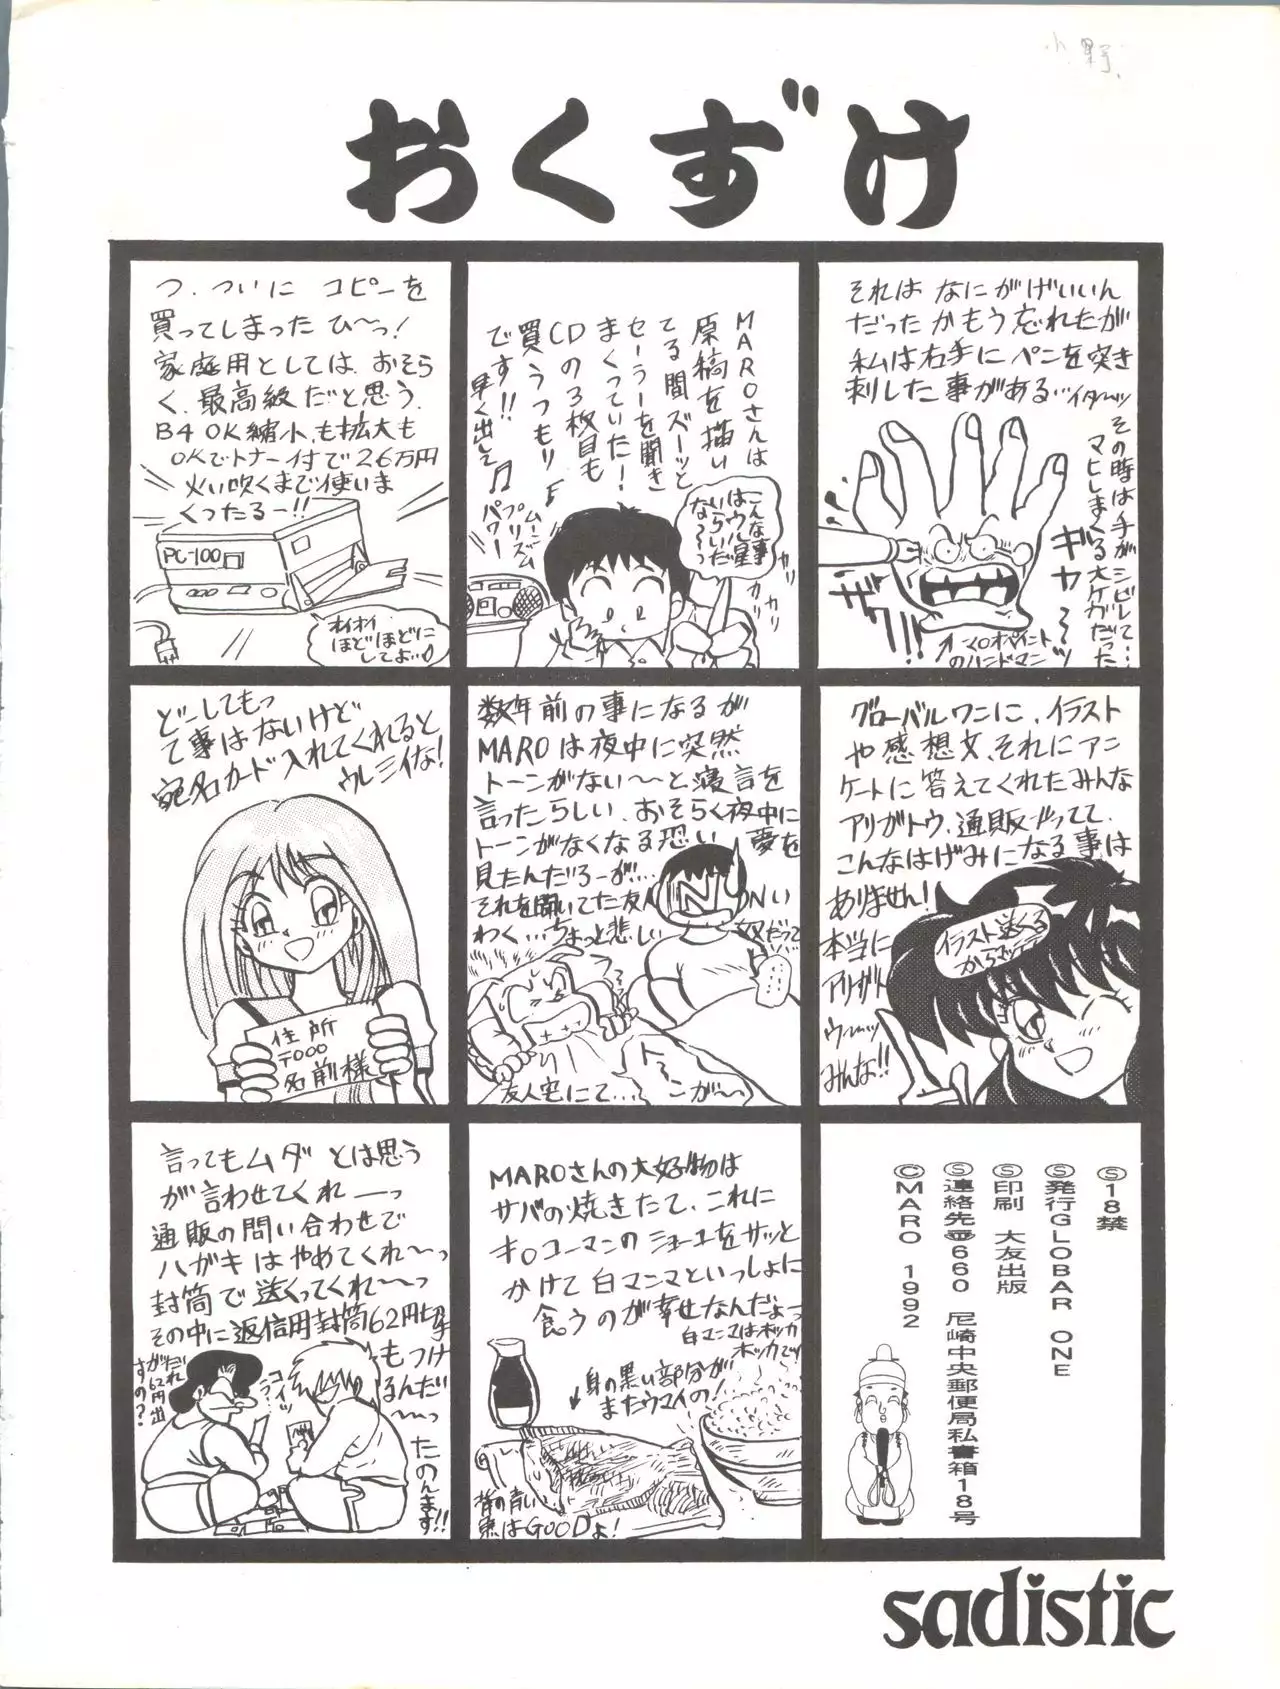 小野
おくずけ
それはなにがげいいん
だったかもう忘れたが
私は右手にペンを突き
刺した事がある…イターッ
その時は手がシビレて…
マヒしまくる大ケガだった
ギャ〜〜ッ
ザクッ!!
マロオペイント
のハンドマン
MAROさんは
原稿を描い
てる間ズーッと
セーラーを聞き
まくっていた!
CDの3枚目も
買うつもり
です!!
早く出して♫
ムーン
プリズム
パワー
こんな事
はウル星
いらいだ
な〜っ
カリ
カリ
カリ
つ、ついに コピーを
買ってしまった ひ〜っ!
家庭用としては、おそら
く、最高級だと思う、
B4 OK縮小、も拡大も
OKでトナー付で26万円
火い吹くまで使いま
くったるー!!
PC-100
オイオイ
ほどほどに
してよ…
グローバルワンに、イラスト
や感想文、それにアン
ケートに答えてくれたみんな
アリガトウ、通販やってて、
こんなはげみになる事は
ありません!
本当に
アリガトウ
ウーッ
みんな!!
イラスト送くる
からマッテテ
数年前の事になるが
MAROは夜中に突然
トーンがない〜〜と寝言を
言ったらしい、おそらく夜中に
トーンがなくなる恐い夢を
見たんだろーが!…
それを聞いてた友人Nい
わく…ちょっと悲しい
奴だって
N
友人宅にて…
トーンが〜っ
どーしてもっ
て事はないけど
宛名カード入れてくれると
ウレシイな!
住所
〒000
名前様
Ⓢ18禁
Ⓢ発行GLOBAR ONE
Ⓢ印刷 大友出版
Ⓢ連絡先〠660 尼崎中央郵便局私書箱18号
ⒸMARO 1992
MAROさんの大好物は
サバの焼きたて、これに
キッコーマンのショーユをサッと
かけて白マンマといっしょに
食うのが幸せなんだょっ
白マンマはホッカ
ホッカでッ
身の黒い部分が
またウマイの!
背の青い
魚はGOODよ!
言ってもムダとは思う
が言わせてくれ――っ
通販の問い合わせで
ハガキはやめてくれ〜っ
封筒で送くってくれ〜〜っ
その中に返信用封筒62円切手
もつけ
るんだ〜
〜っ
たのんます!!
コイツ
だれが62円出
すの?
sadistic